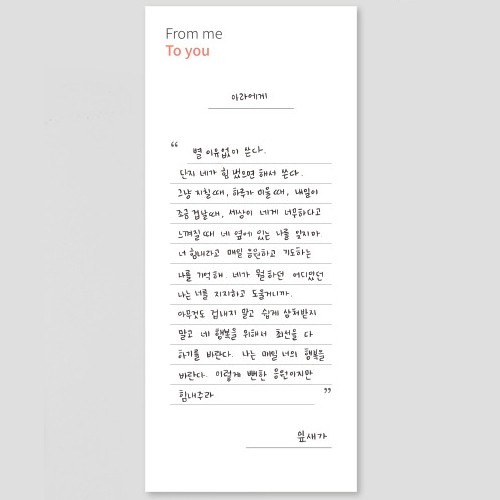 From me
To you
아라에게
“
별 이유없이 쓴다.
단지 네가 힘 냈으면 해서 쓴다.
그냥 지칠 때, 하루가 미울 때, 내일이
조금 겁날때, 세상이 네게 너무하다고
느껴질 때 네 옆에 있는 나를 잊지마
너 힘내라고 매일 응원하고 기도하는
나를 기억해. 네가 뭘 하던 어디있던
나는 너를 지지하고 도울거니까.
아무것도 겁내지 말고 쉽게 상처받지
말고 네 행복을 위해서 최선을 다
하기를 바란다. 나는 매일 너의 행복을
바란다. 이렇게 뻔한 응원이지만
힘내주라
”
잎새가